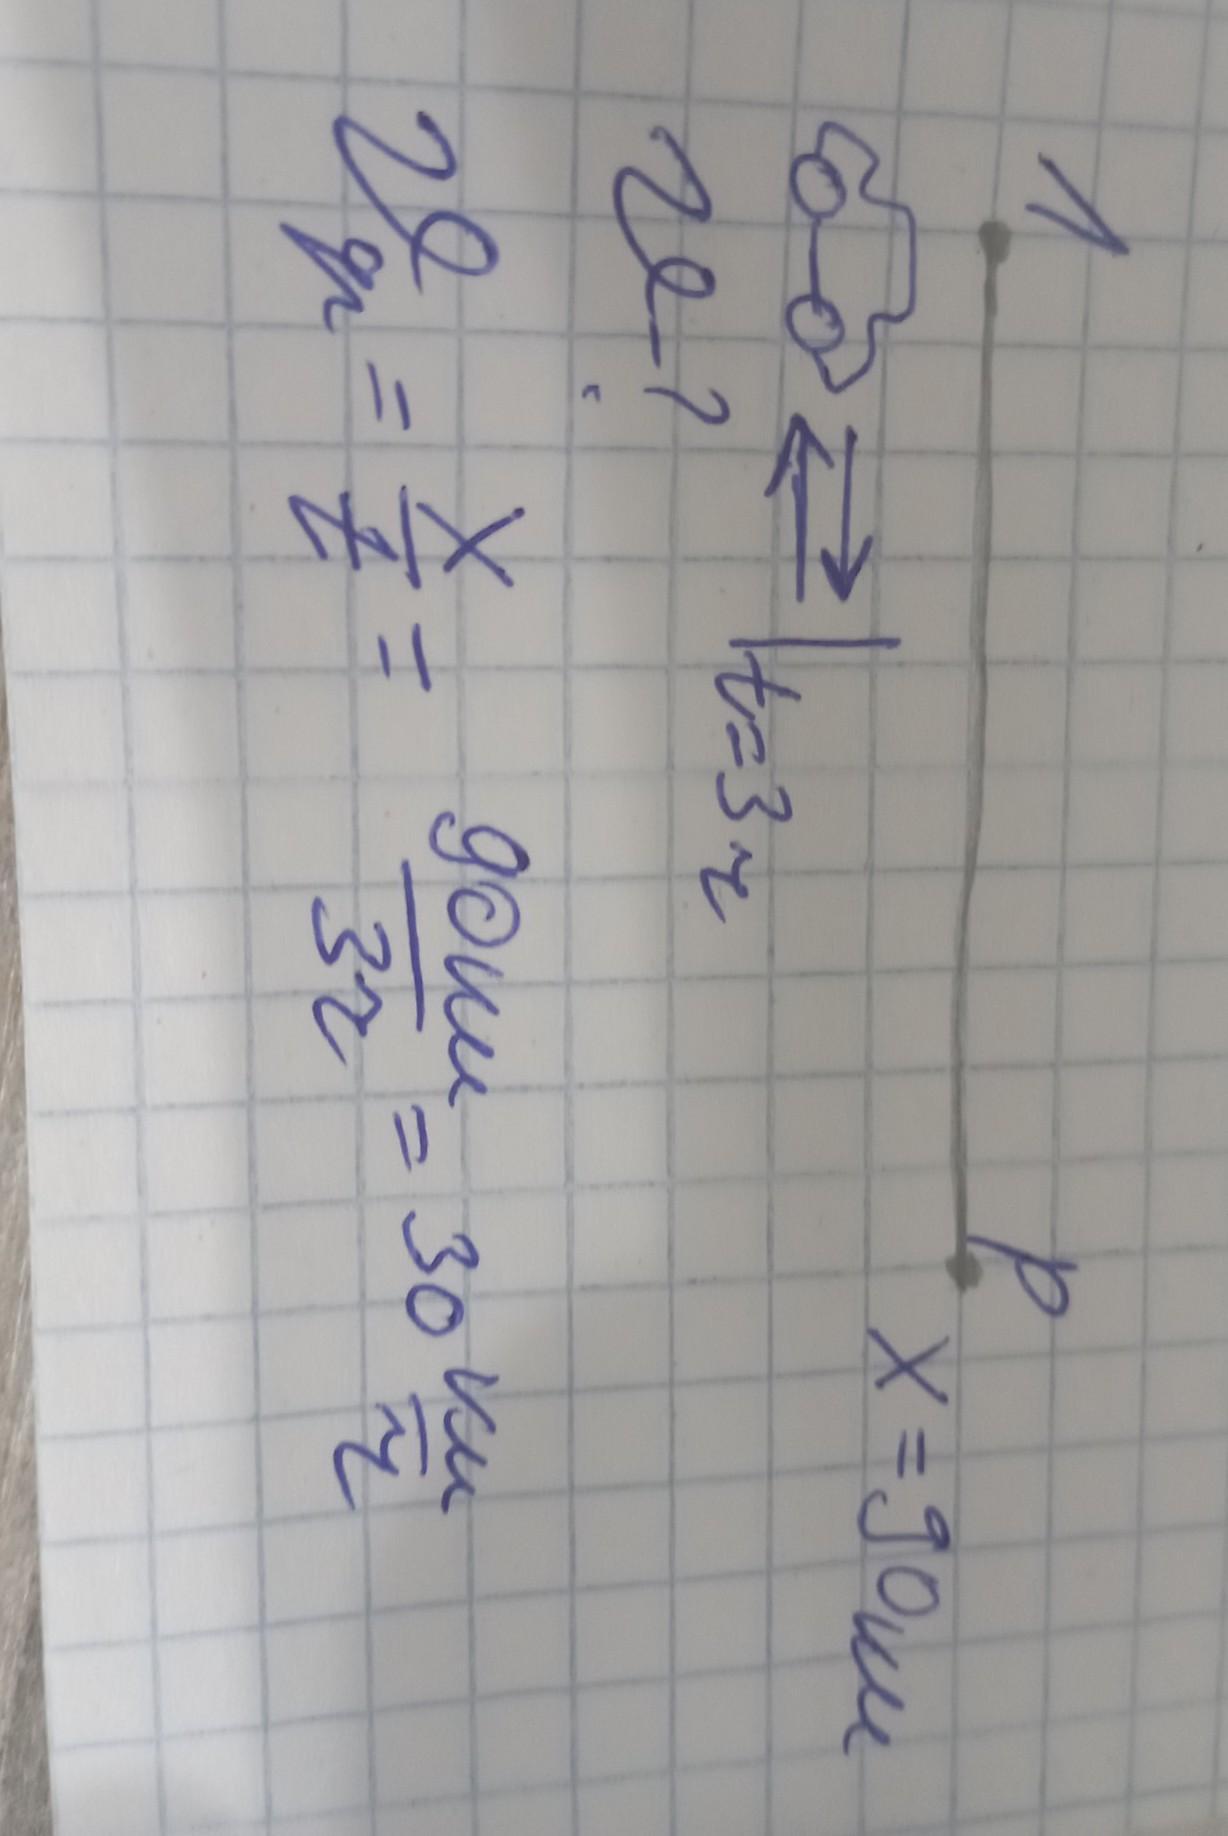 1 р
x = 90км
t = 3ч
v – ?
vр = x/t = 90км/3ч = 30 км/ч